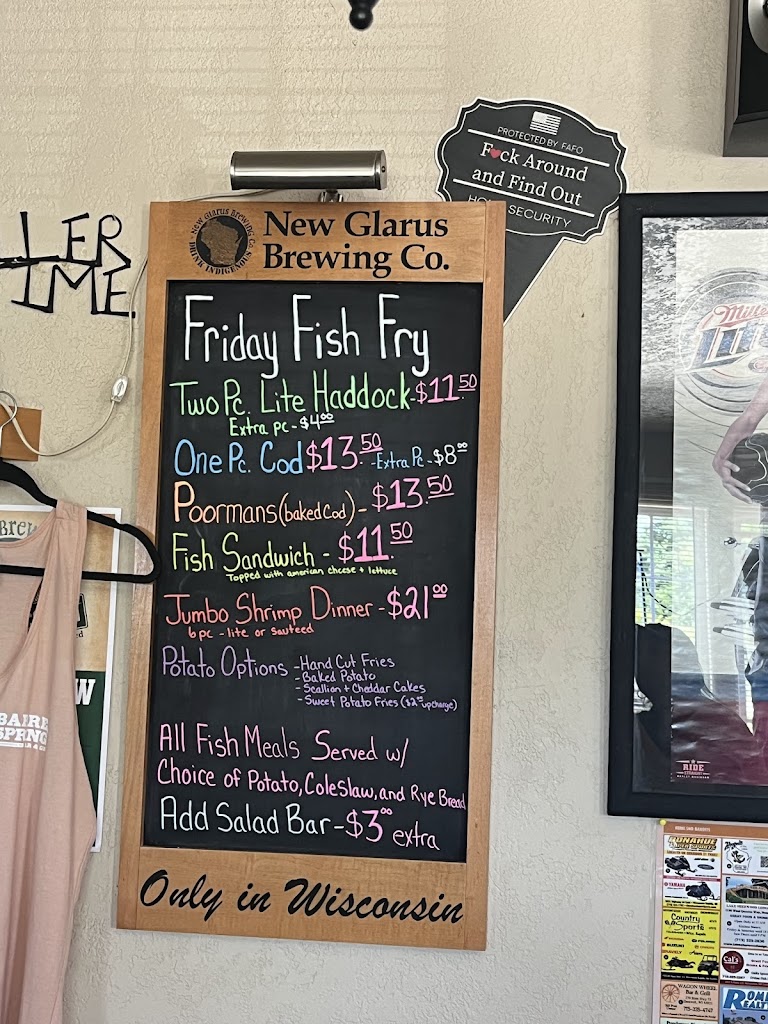 PROTECTED BY FAFO
F❤ck Around
and Find Out
SECURITY
NEW GLARUS BREWING CO.
DRINK INDIGENOUS
New Glarus
Brewing Co.
LER
IME
Friday Fish Fry
Two Pc. Lite Haddock-$11.50
Extra pc-$4.00
One Pc. Cod $13.50 -Extra Pc-$8.00
Poormans (baked Cod) - $13.50
Fish Sandwich - $11.50
Topped with american cheese + lettuce
Jumbo Shrimp Dinner - $21.00
6 pc - lite or sauteed
Potato Options - Hand Cut Fries
- Baked Potato
- Scallion + Cheddar Cakes
- Sweet Potato Fries ($2.00 upcharge)
All Fish Meals Served w/
Choice of Potato, Coleslaw, and Rye Bread
Add Salad Bar - $3.00 extra
Only in Wisconsin
Miller
RIDE
W
YAMAHA
Country
Sports
SUZUKI
Cal's
WAGON WHEEL
Bar & Grill